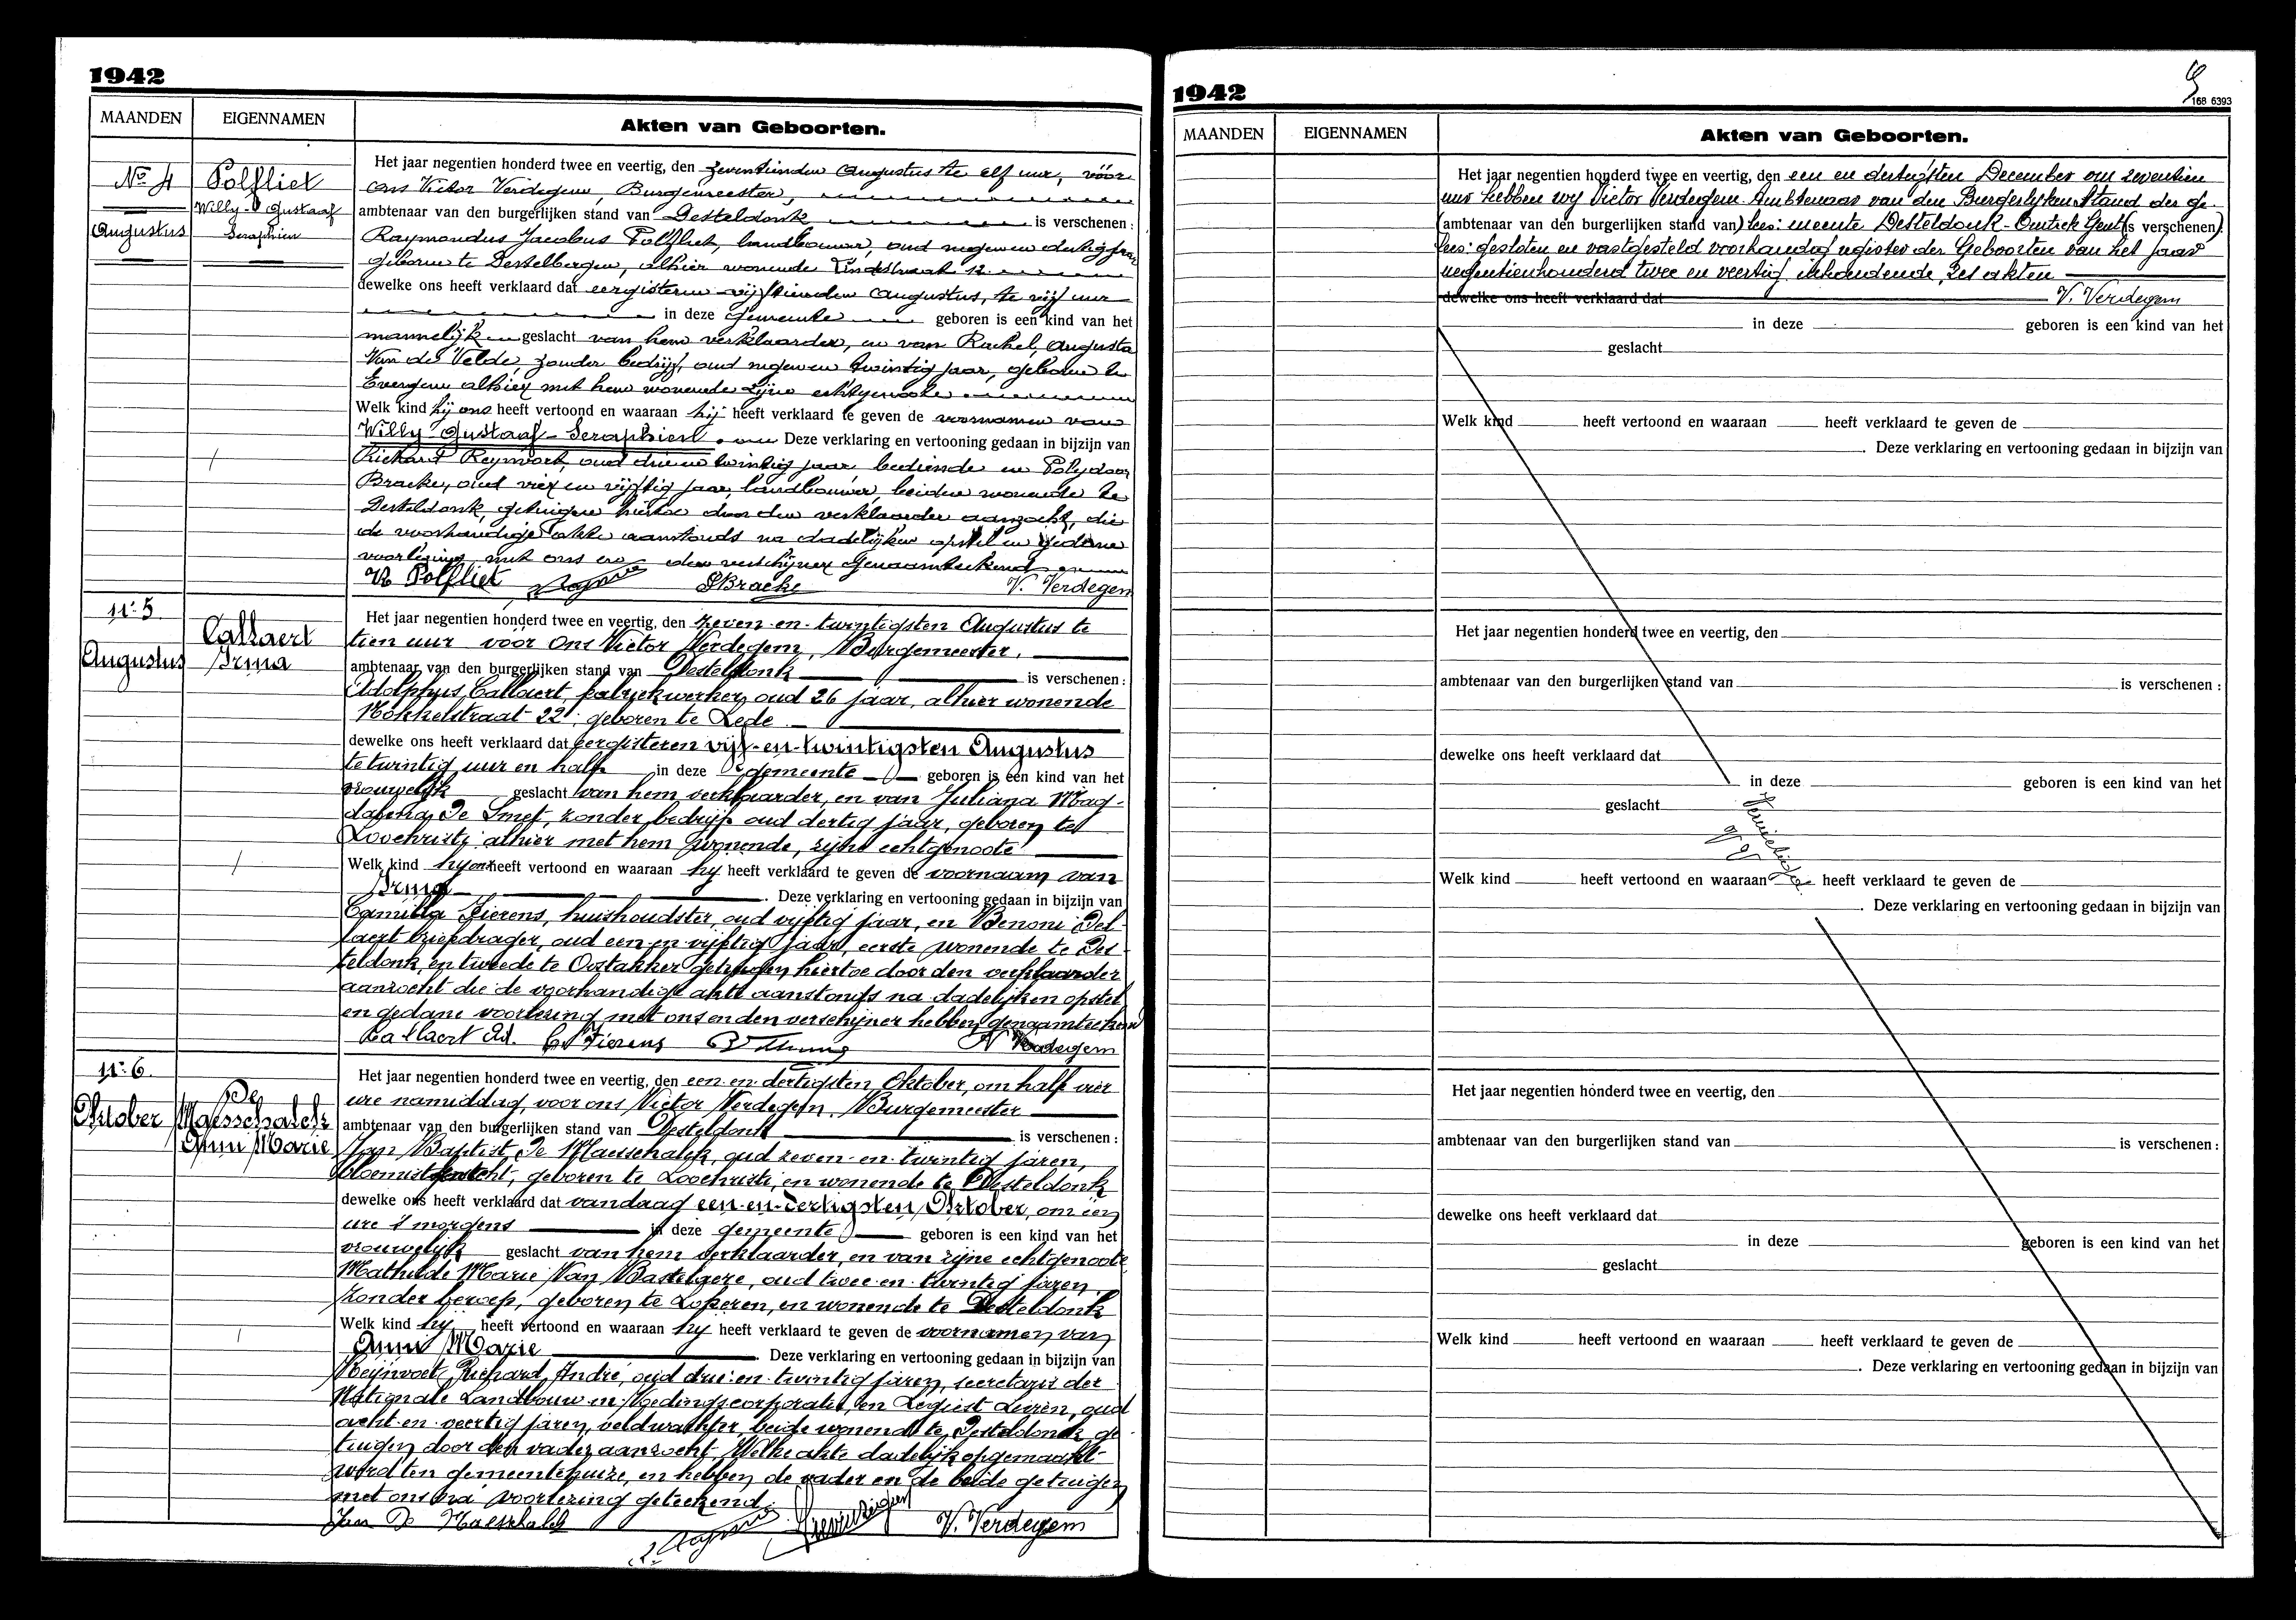 1942
MAANDEN EIGENNAMEN Akten van Geboorten.
No 4 Polfliet
Willy Gustaaf
Augustus Seraphien
Het jaar negentien honderd twee en veertig, den zeventienden Augustus te elf uur, vóór
ons Victor Verdegem, Burgemeester,
ambtenaar van den burgerlijken stand van Desteldonk is verschenen :
Raymondus Jacobus Polfliet, landbouwer, oud negen en dertig jaar
geboren te Destelbergen, alhier wonende Lindestraat 12
dewelke ons heeft verklaard dat eergisteren vijftienden Augustus, te vijf uur
in deze gemeente geboren is een kind van het
mannelijk geslacht van hem verklaarder, en van Rachel, Augusta
Van de Velde, zonder bedrijf, oud negen en twintig jaar, geboren te
Evergem alhier met hem wonende zijne echtgenoote
Welk kind hij ons heeft vertoond en waaraan hij heeft verklaard te geven de voornamen van
Willy - Gustaaf - Seraphien. Deze verklaring en vertooning gedaan in bijzijn van
Richard Reynvoet, oud drie en twintig jaar bediende en Polydoor
Bracke, oud vier en vijftig jaar, landbouwer, beiden wonende te
Desteldonk, getuigen hiertoe door den verklaarder aanzocht, die
de voorhandige akte aanstonds na dadelijken opstel en gedane
voorlezing met ons en den verschijner genaamteekend
R Polfliet PBracke V. Verdegem
No 5
Callaert
Augustus Irma
Het jaar negentien honderd twee en veertig, den zeven-en-twintigsten Augustus te
tien uur vóór Ons Victor Verdegem, Burgemeester,
ambtenaar van den burgerlijken stand van Desteldonk is verschenen :
Adolphus Callaert, fabriekwerker, oud 26 jaar, alhier wonende
Mokkelstraat 22, geboren te Lede
dewelke ons heeft verklaard dat eergisteren vijf-en-twintigsten Augustus
te twintig uur en half in deze gemeente geboren is een kind van het
vrouwelijk geslacht van hem verklaarder, en van Juliana Mag-
dalena De Smet, zonder bedrijf oud dertig jaar, geboren te
Loochristi alhier met hem wonende, zijne echtgenoote
Welk kind hy ons heeft vertoond en waaraan hy heeft verklaard te geven de voornaam van
Irma Deze verklaring en vertooning gedaan in bijzijn van
Camilla Fierens, huishoudster, oud vijftig jaar, en Benoni Del-
laert briefdrager, oud een en vijftig jaar, eerste wonende te Des-
teldonk, en tweede te Oostakker getuigen hiertoe door den verklaarder
aanzocht die de voorhandige akte aanstonds na dadelijken opstel
en gedane voorlezing met ons en den verschijner hebben genaamteekend
Callaert Ad. C Fierens V Verdegem
No 6
De
Oktober Maesschalck
Anni Marie
Het jaar negentien honderd twee en veertig, den een-en-dertigsten Oktober, om half vier
ure namiddag, voor ons Victor Verdegem, Burgemeester
ambtenaar van den burgerlijken stand van Desteldonk is verschenen :
Jan Baptist De Maesschalck, oud zeven-en-twintig jaren,
geboren te Loochristi, en wonende te Desteldonk
dewelke ons heeft verklaard dat vandaag een-en-dertigsten Oktober, om één
ure 's morgens in deze gemeente geboren is een kind van het
vrouwelijk geslacht van hem verklaarder, en van zijne echtgenoote
Mathilde Marie Van Bastelaere, oud twee-en-twintig jaren,
zonder beroep, geboren te Lokeren, en wonende te Desteldonk
Welk kind hij heeft vertoond en waaraan hy heeft verklaard te geven de voornamen van
Anni Marie Deze verklaring en vertooning gedaan in bijzijn van
Reijnvoet, Richard, André, oud drie-en-twintig jaren, secretaris der
Nationale Landbouw en Voedingscorporatie, en Legiest Leiren, oud
acht-en-veertig jaren, veldwachter, beide wonende te Desteldonk, ge-
tuigen door den vader aanzocht. Welke akte dadelijk opgemaakt
werd ten gemeentehuize, en hebben de vader en de beide getuigen
met ons na voorlezing geteekend.
Jan De Maesschalck V. Verdegem
1942
9
168 6393
MAANDEN EIGENNAMEN Akten van Geboorten.
Het jaar negentien honderd twee en veertig, den een en dertigsten December om zeventien
uur hebben wy Victor Verdegem Ambtenaar van den Burgerlyken Stand der ge-
(ambtenaar van den burgerlijken stand van) lees: meente Desteldonk - Omtrek Gent (is verschenen):
lees: gesloten en vastgesteld voorhandig register der Geboorten van het jaar
negentienhonderd twee en veertig inhoudende, zes akten
dewelke ons heeft verklaard dat V. Verdegem
in deze geboren is een kind van het
geslacht
Welk kind heeft vertoond en waaraan heeft verklaard te geven de
. Deze verklaring en vertooning gedaan in bijzijn van
Het jaar negentien honderd twee en veertig, den
ambtenaar van den burgerlijken stand van is verschenen :
dewelke ons heeft verklaard dat
in deze geboren is een kind van het
geslacht
Welk kind heeft vertoond en waaraan heeft verklaard te geven de
. Deze verklaring en vertooning gedaan in bijzijn van
Het jaar negentien honderd twee en veertig, den
ambtenaar van den burgerlijken stand van is verschenen :
dewelke ons heeft verklaard dat
in deze geboren is een kind van het
geslacht
Welk kind heeft vertoond en waaraan heeft verklaard te geven de
. Deze verklaring en vertooning gedaan in bijzijn van